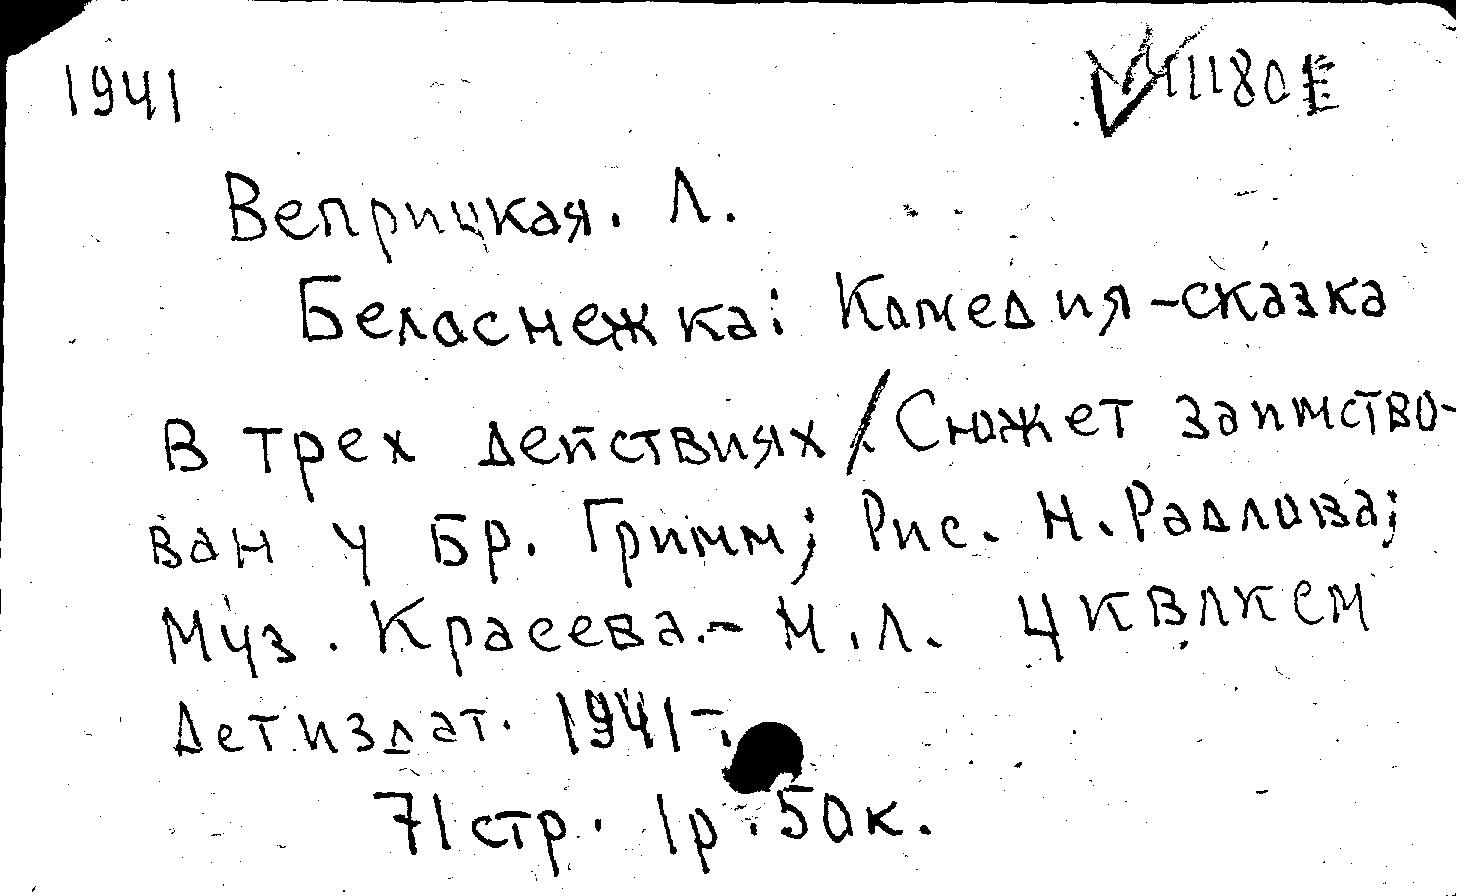 1941
11180Е
Веприцкая. Л.
Белоснежка: Комедия-сказка
в трех действиях / Сюжет заимство-
ван у Бр. Гримм; Рис. Н. Радлова;
Муз. Красева. - М. Л. ЦКВЛКСМ
Детиздат. 1941 -
71 стр. 1р. 50к.